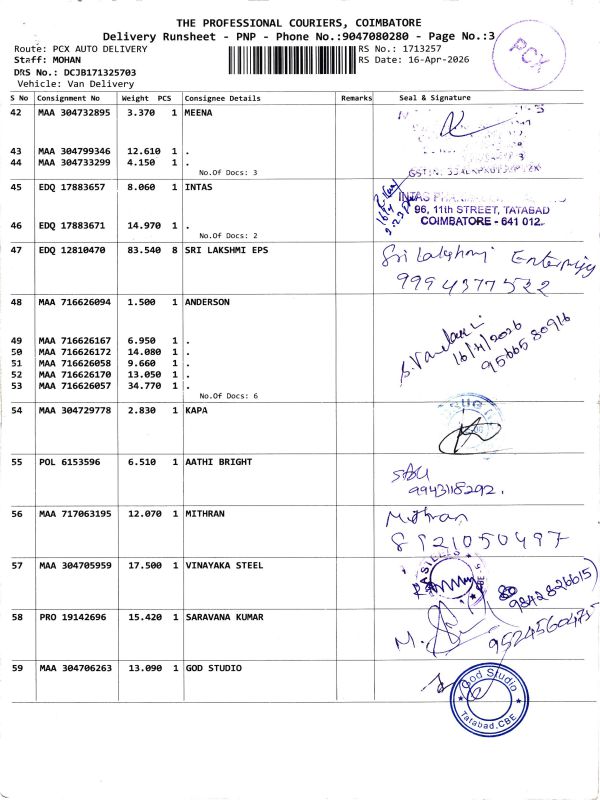 THE PROFESSIONAL COURIERS, COIMBATORE
Delivery Runsheet - PNP - Phone No.:9047080280 - Page No.:3
Route: PCX AUTO DELIVERY
RS No.: 1713257
Staff: MOHAN
RS Date: 16-Apr-2026
DRS No.: DCJB171325703
Vehicle: Van Delivery
PCX
S No Consignment No Weight PCS Consignee Details Remarks Seal & Signature
42 MAA 304732895 3.370 1 MEENA
43 MAA 304799346 12.610 1 .
44 MAA 304733299 4.150 1 .
No.Of Docs: 3
45 EDQ 17883657 8.060 1 INTAS
INTAS
96, 11th STREET, TATABAD
COIMBATORE - 641 012.
46 EDQ 17883671 14.970 1 .
No.Of Docs: 2
47 EDQ 12810470 83.540 8 SRI LAKSHMI EPS
Sri Lakshmi
9994377522
48 MAA 716626094 1.500 1 ANDERSON
16/4/2026
9566580916
49 MAA 716626167 6.950 1 .
50 MAA 716626172 14.080 1 .
51 MAA 716626058 9.660 1 .
52 MAA 716626170 13.050 1 .
53 MAA 716626057 34.770 1 .
No.Of Docs: 6
54 MAA 304729778 2.830 1 KAPA
55 POL 6153596 6.510 1 AATHI BRIGHT
9943118292.
56 MAA 717063195 12.070 1 MITHRAN
Mithran
8921050497
57 MAA 304705959 17.500 1 VINAYAKA STEEL
9842826615)
58 PRO 19142696 15.420 1 SARAVANA KUMAR
M.
59 MAA 304706263 13.090 1 GOD STUDIO
God Studio
Tatabad, CBE